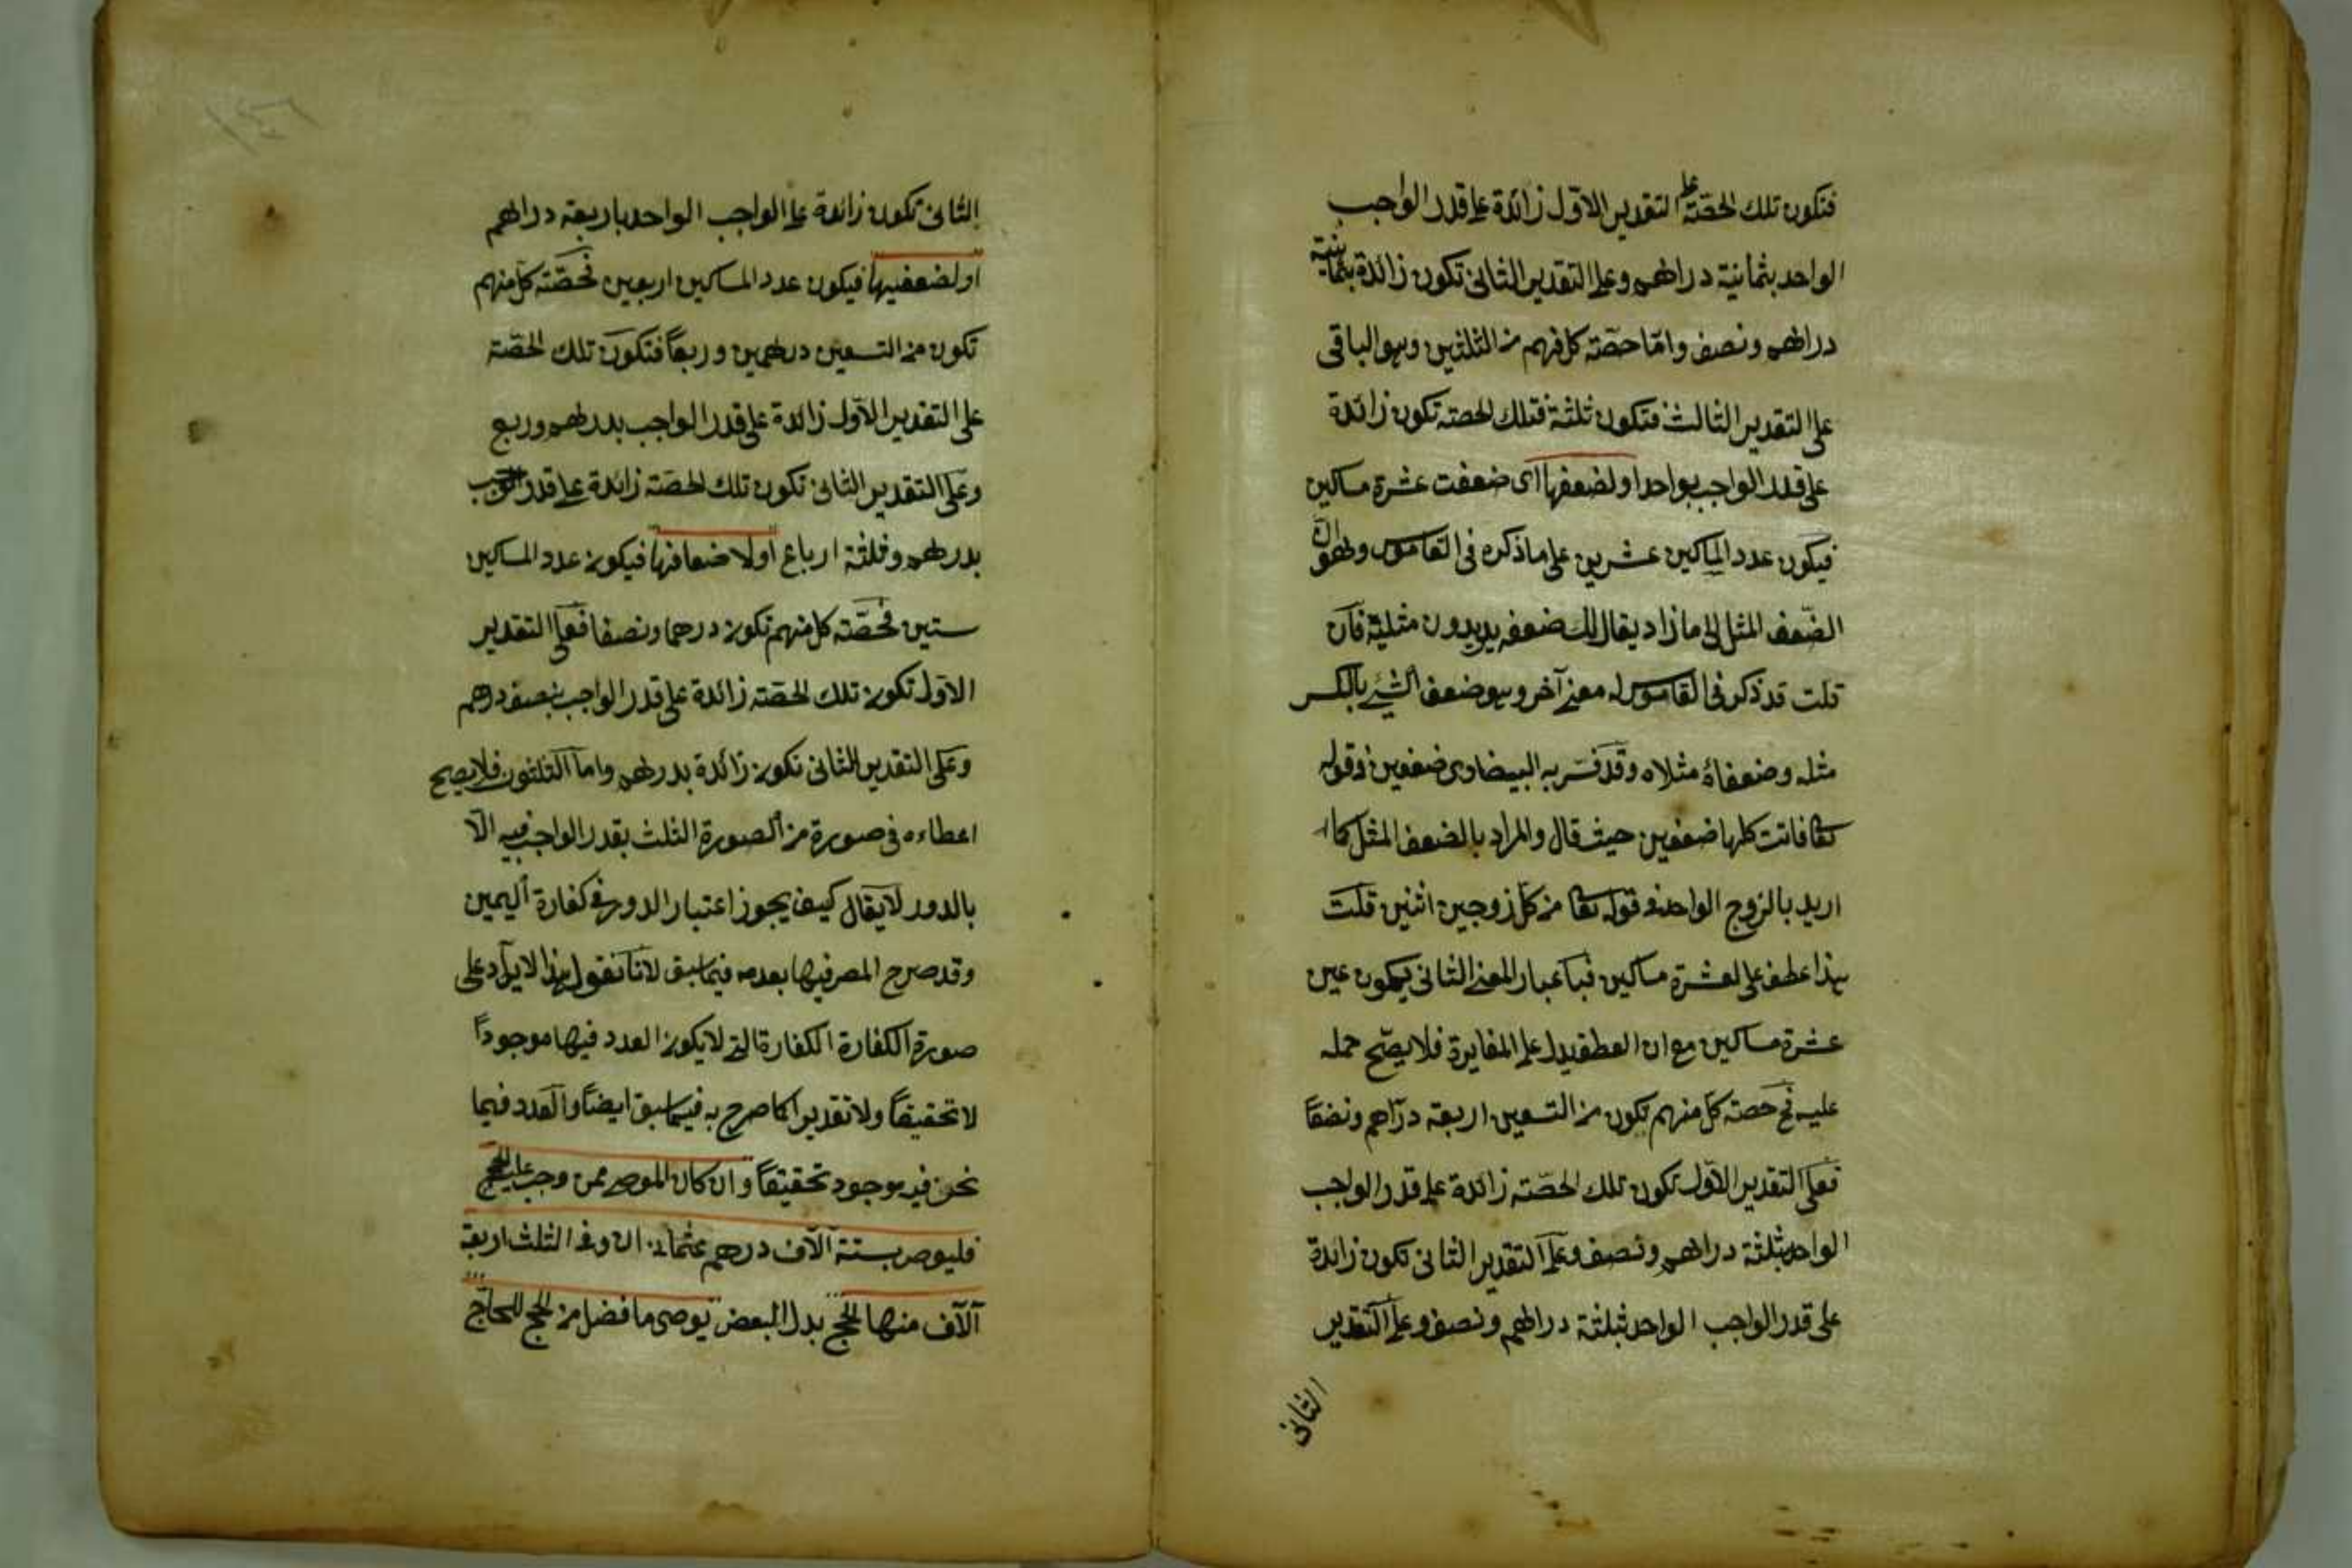 فتكون تلك الحصّة على التقدير الاوّل زائدة على قدر الواجب
الواحد بثمانية دراهم وعلى التقدير الثانى تكون زائدة بثمانية
دراهم ونصف وامّا حصّة كل منهم من الثلثين وهو الباقى
على التقدير الثالث فتكون ثلثة فتلك الحصة تكون زائدة
على قدر الواجب بواحد او لضعفها اى ضعفت عشرة مساكين
فيكون عدد المساكين عشرين على ما ذكره فى القاموس وهو ان
الضّعف المثل الى ما زاد يقال لك ضعفه يريدون مثليه فان
قلت قد ذكر فى القاموس له معنى آخر وهو ضعف الشئ بالكسر
مثله وضعفاهُ مثلاه وقد فسّر به البيضاوى ضعفين فى قوله
تعا فاتت كلها ضعفين حيث قال والمراد بالضعف المثل كما
اريد بالزوج الواحد فى قوله تعا من كل زوجين اثنين قلت
هذا عطف على لعشرة مساكين فباعبار المعنى الثانى يكون عين
عشرة مساكين مع ان العطف يدل على المغايرة فلا يصّح حمله
عليه فح حصة كل منهم تكون من التسعين اربعة دراهم ونصفا
فعلى التقدير الاوّل تكون تلك الحصّة زائدة على قدر الواجب
الواحد بثلثة دراهم ونصف وعلى التقدير الثانى تكون زائدة
على قدر الواجب الواحد بثلثة دراهم ونصف وعلى التقدير
الثانى
الثانى تكون زائدة على الواجب الواحد باربعة دراهم
او لضعفيها فيكون عدد المساكين اربعين فحصّة كل منهم
تكون من التسعين درهمين وربعاً فتكون تلك الحصّة
على التقدير الاوّل زائدة على قدر الواجب بدرهم وربع
وعلى التقدير الثانى تكون تلك الحصّة زائدة على قدر الواجب
بدرهم وثلثة ارباع او لاضعافها فيكون عدد المساكين
ستين فحصّة كل منهم تكون درهما ونصفا فعلى التقدير
الاوّل تكون تلك الحصّة زائدة على قدر الواجب بنصف درهم
وعلى التقدير الثانى تكون زائدة بدرهم واما الثلثون فلا يصح
اعطاءه فى صورة من الصورة الثلث بقدر الواجب فيه الّا
بالدور لا يقال كيف يجوز اعتبار الدور فى كفارة اليمين
وقد صرح المصر فيها بعدمه فيما سبق لانا نقول هذا الايراد على
صورة الكفارة الكفارة التى لا يكون العدد فيها موجوداً
لا تحقيقاً ولا تقديرا كما صرح به فيما سبق ايضاً والعدد فيما
نحن فيه موجود تحقيقاً وان كان الموصى ممن وجب عليه الحج
فليوص بستة آلاف درهم عثمانى ان وفى الثلث اربعة
آلاف منها للحج بدل البعض يوصى ما فضل من الحج للحاج